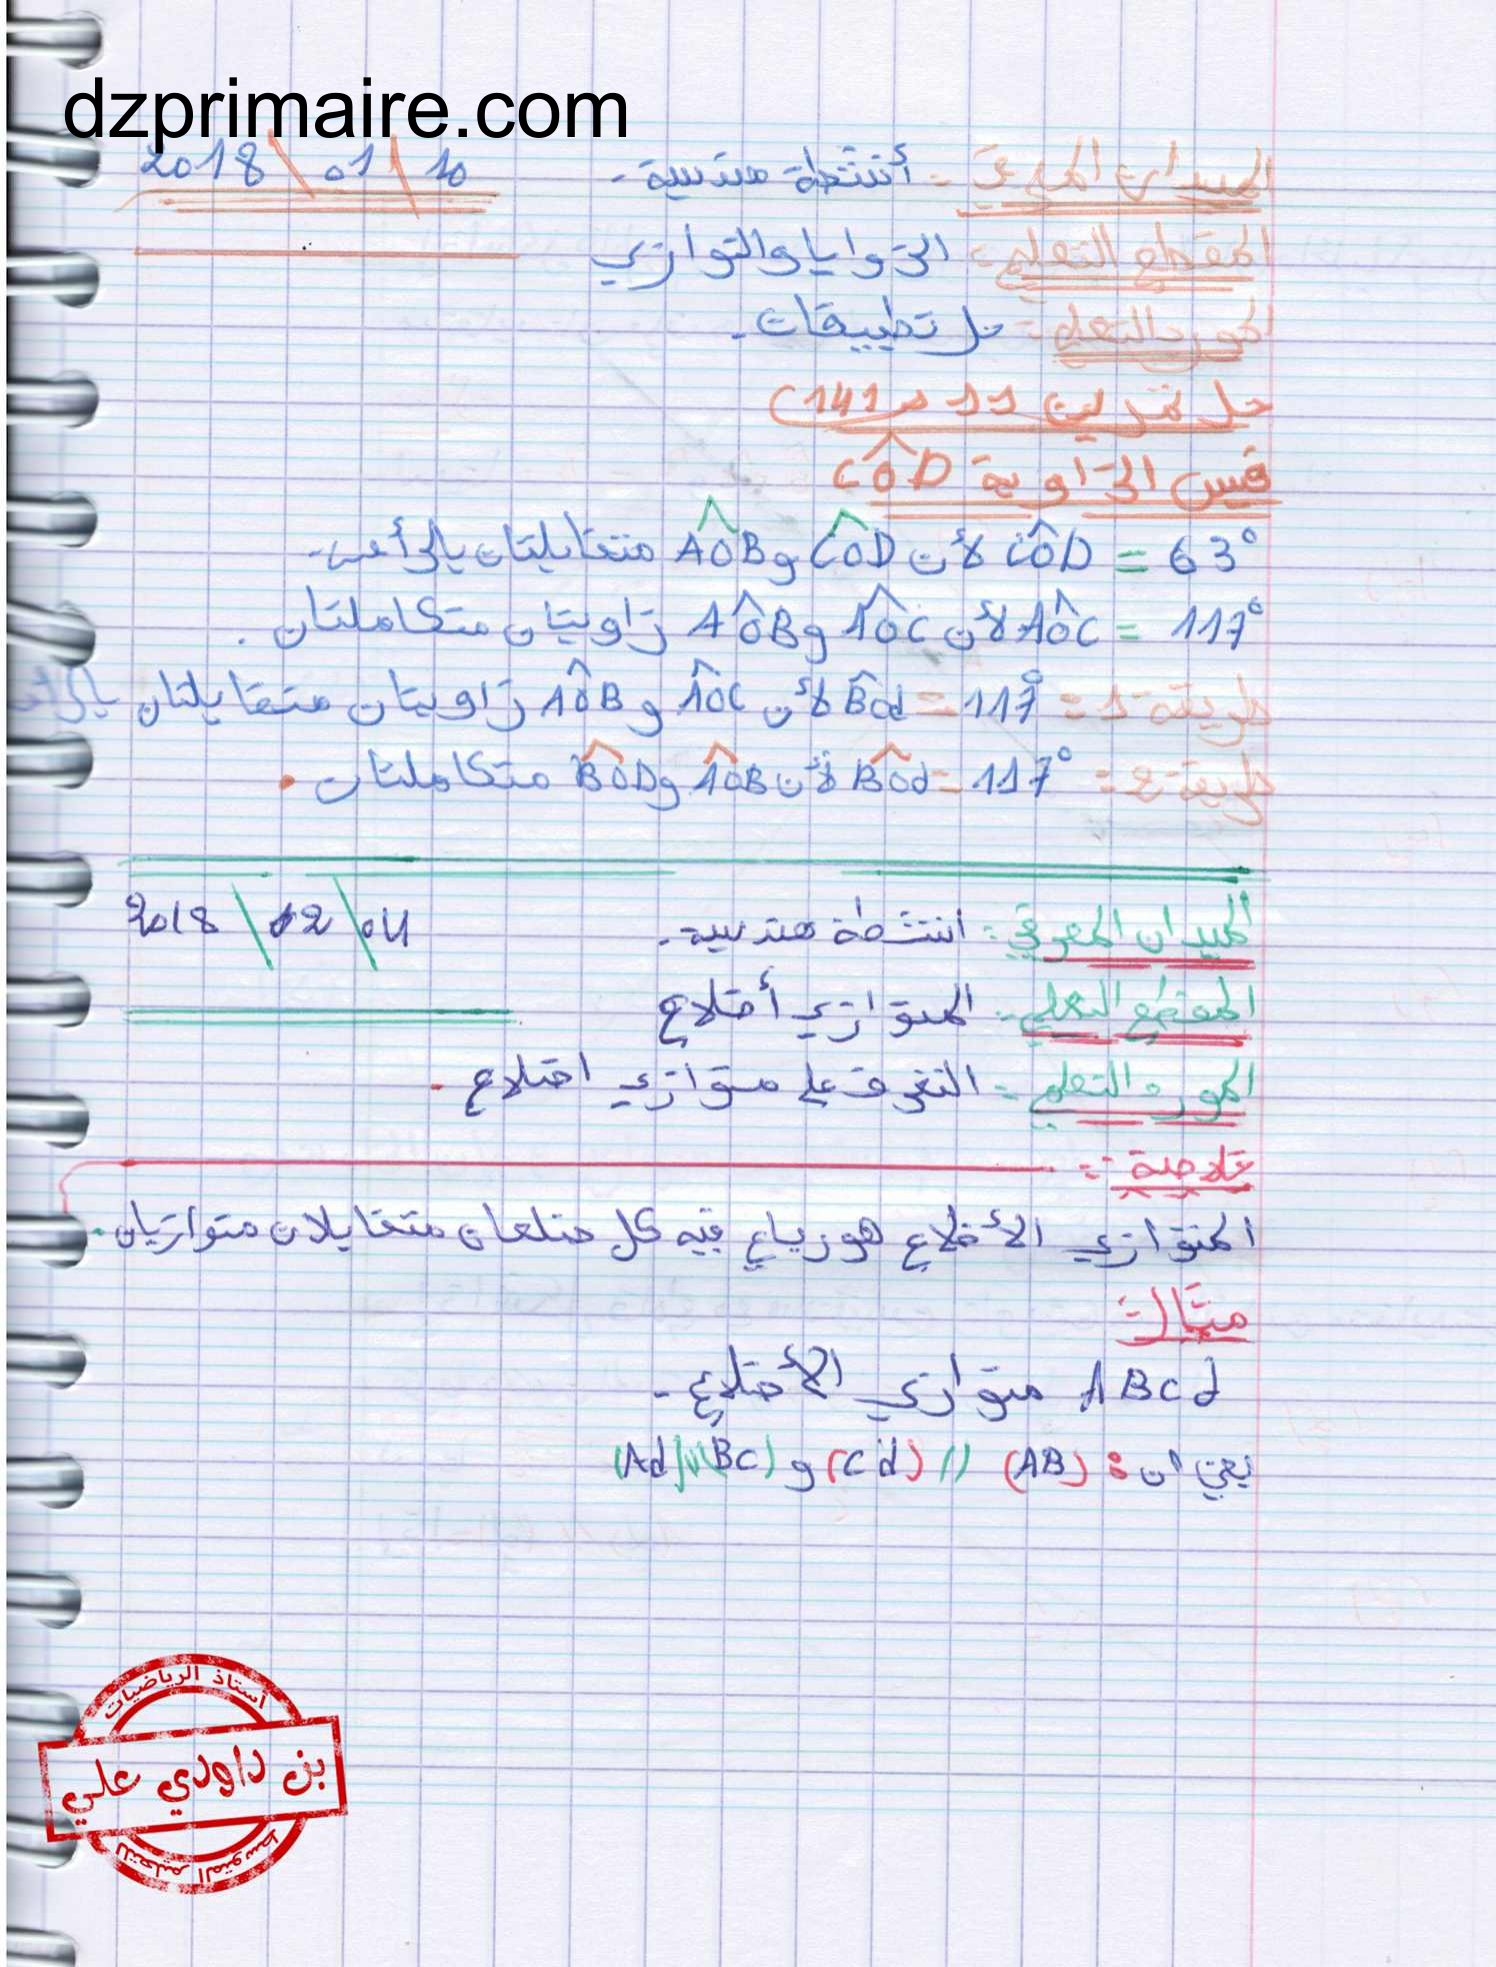 dzprimaire.com
الميدان المعرفي :- أنشطة هندسية . 2018 \ 01 \ 10
المقطع التعلمي :- الزوايا والتوازي
المورد التعلمي :- حل تطبيقات .
حل تمرين 11 ص 141)
قيس الزاوية CÔD
CÔD = 63° لأن CÔD و AÔB متقابلتان بالرأس .
AÔC = 117° لأن AÔC و AÔB زاويتان متكاملتان .
طريقة 1 = BÔd = 117° لأن AÔC و AÔB زاويتان متقابلتان بالرأس
طريقة 2 = BÔd = 117° لأن AÔB و BÔD متكاملتان .
الميدان المعرفي :- انشطة هندسية . 2018 \ 02 \ 04
المقطع التعلمي :- المتوازي أضلاع
المورد التعلمي :- التعرف على متوازي اضلاع .
خلاصة :-
المتوازي الأضلاع هو رباعي فيه كل ضلعان متقابلان متوازيان .
مثال :
ABCd متوازي الأضلاع .
يعني ان : (AB) // (Cd) و (BC) // (Ad)
أستاذ الرياضيات
بن داودي علي
للتعليم المتوسط